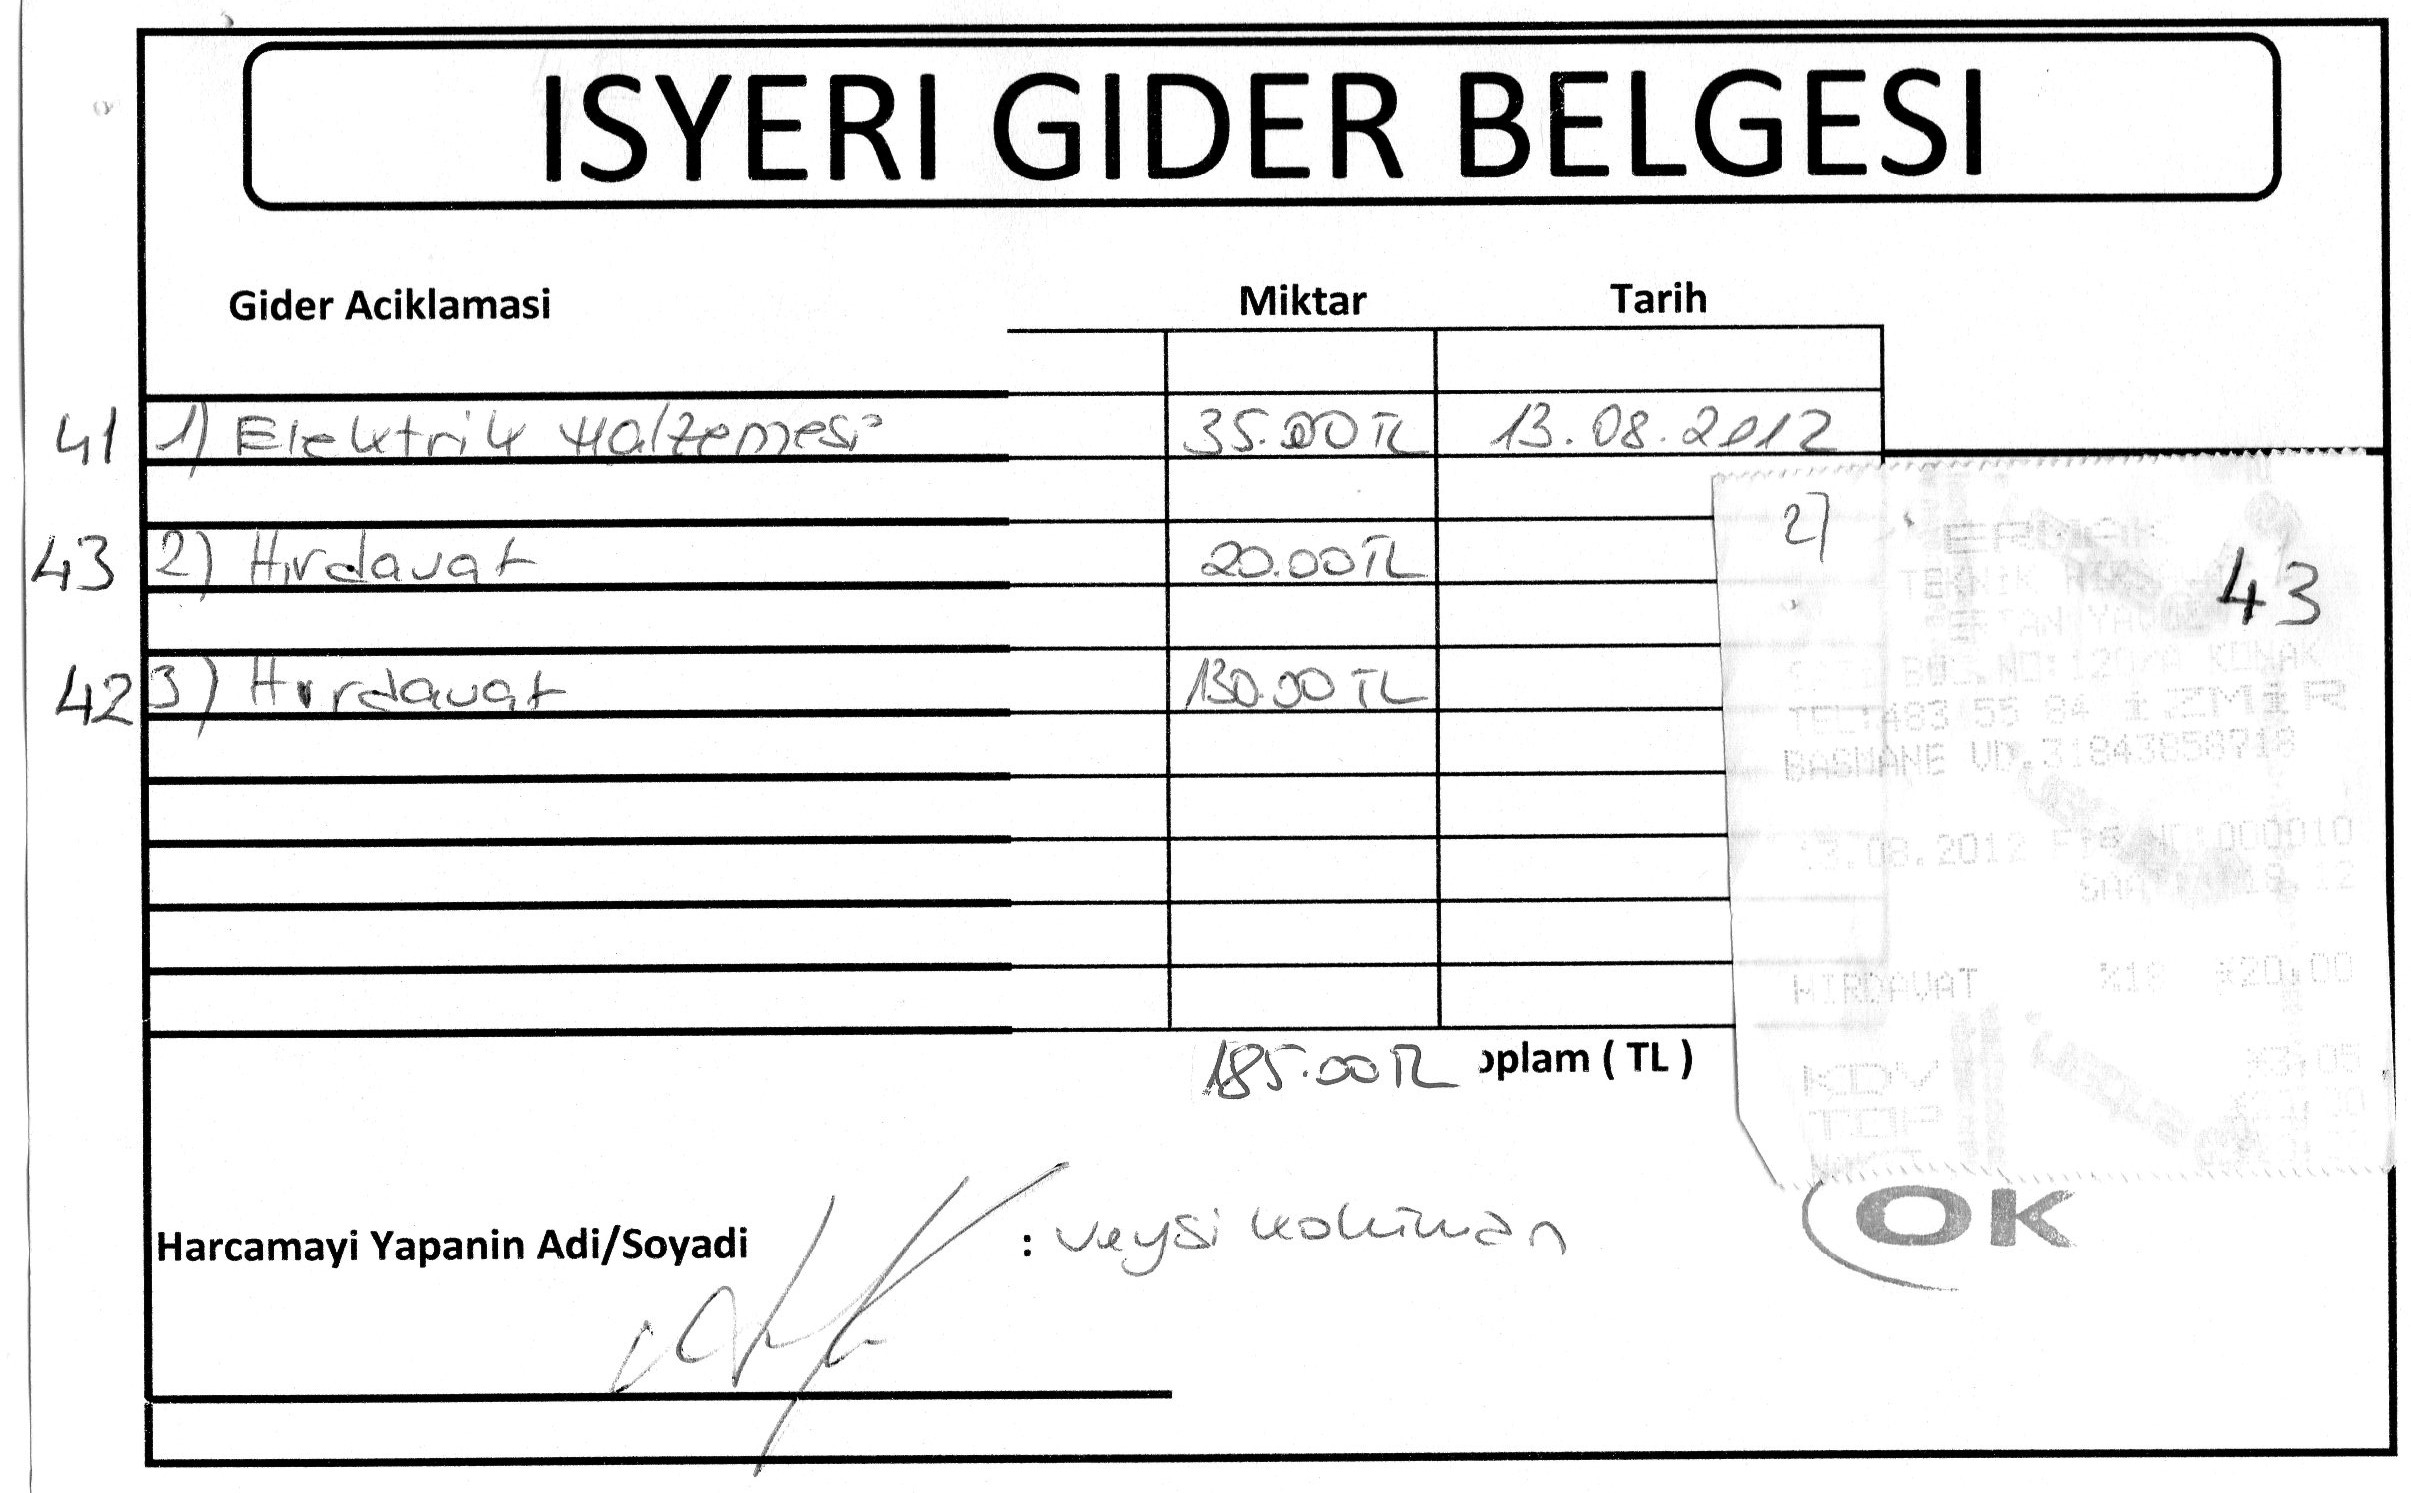 ISYERI GIDER BELGESI
Gider Aciklamasi Miktar Tarih
41 1) Elektrik Malzemesi 35.00 TL 13.08.2012
43 2) Hırdavat 20.00 TL
42 3) Hırdavat 130.00 TL
185.00 TL oplam ( TL )
Harcamayi Yapanin Adi/Soyadi : Veysi
2)
43
ERMAK
KONAK
TEL:483 55 84 İZMİR
BASMANE VD.
.08.2012 FİŞ NO:000010
HIRDAVAT %18 *20,00
KDV *3,05
TOP
OK